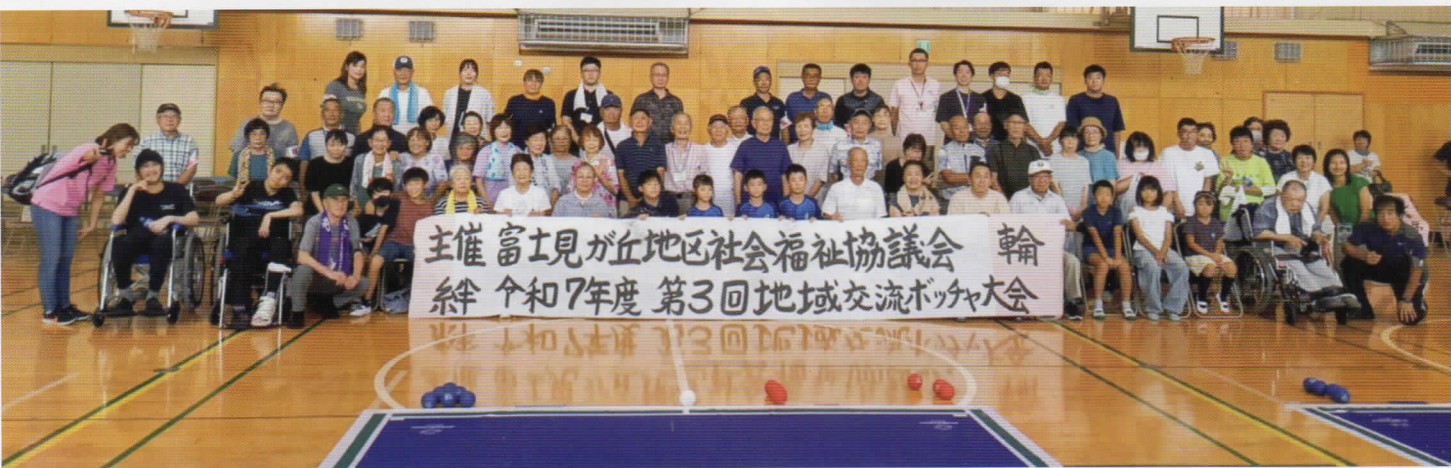 主催 富士見が丘地区社会福祉協議会 輪
絆 令和7年度 第3回地域交流ボッチャ大会